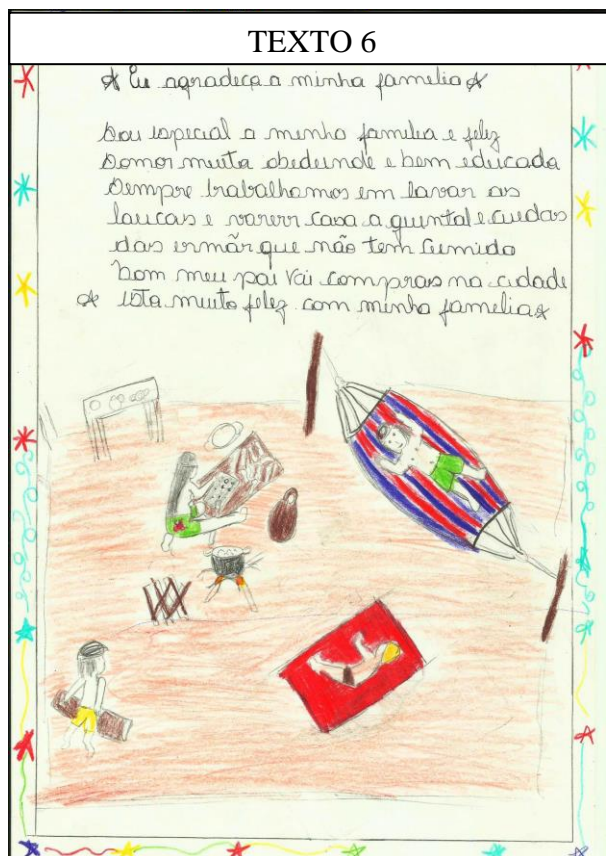 TEXTO 6
Eu agradeço a minha famelia
Sou especial a minha familia e feliz
Somor muita obedeende e bem educada
Sempre trabalhamos em lavar as
laucas e varerr casa a quintal e cuedas
das ermãr que não tem cumida
bom meu pai vai compras na cidade
esta muito felez com minha famelia